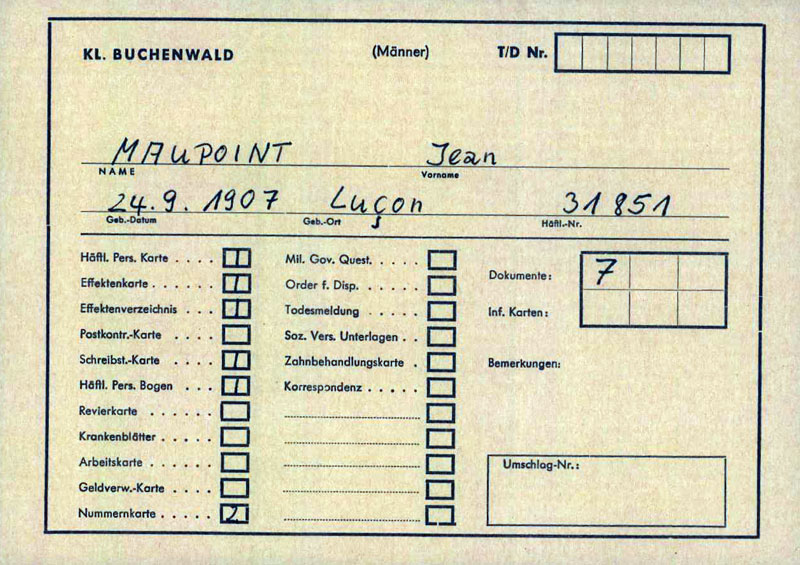 KL. BUCHENWALD (Männer) T/D Nr.
MAUPOINT Jean
NAME Vorname
24.9.1907 Luçon 31851
Geb.-Datum Geb.-Ort Häftl.-Nr.
Häftl. Pers. Karte . . . . 1
Effektenkarte . . . . 1
Effektenverzeichnis . . . . 1
Postkontr.-Karte . . . .
Schreibst.-Karte . . . . 1
Häftl. Pers. Bogen . . . . 1
Revierkarte . . . . . .
Krankenblätter . . . . .
Arbeitskarte . . . . . .
Geldverw.-Karte . . . . .
Nummernkarte . . . . . 2
Mil. Gov. Quest. . . . . .
Order f. Disp. . . . . .
Todesmeldung . . . . .
Soz. Vers. Unterlagen . .
Zahnbehandlungskarte .
Korrespondenz . . . . .
Dokumente: 7
Inf. Karten:
Bemerkungen:
Umschlag-Nr.: